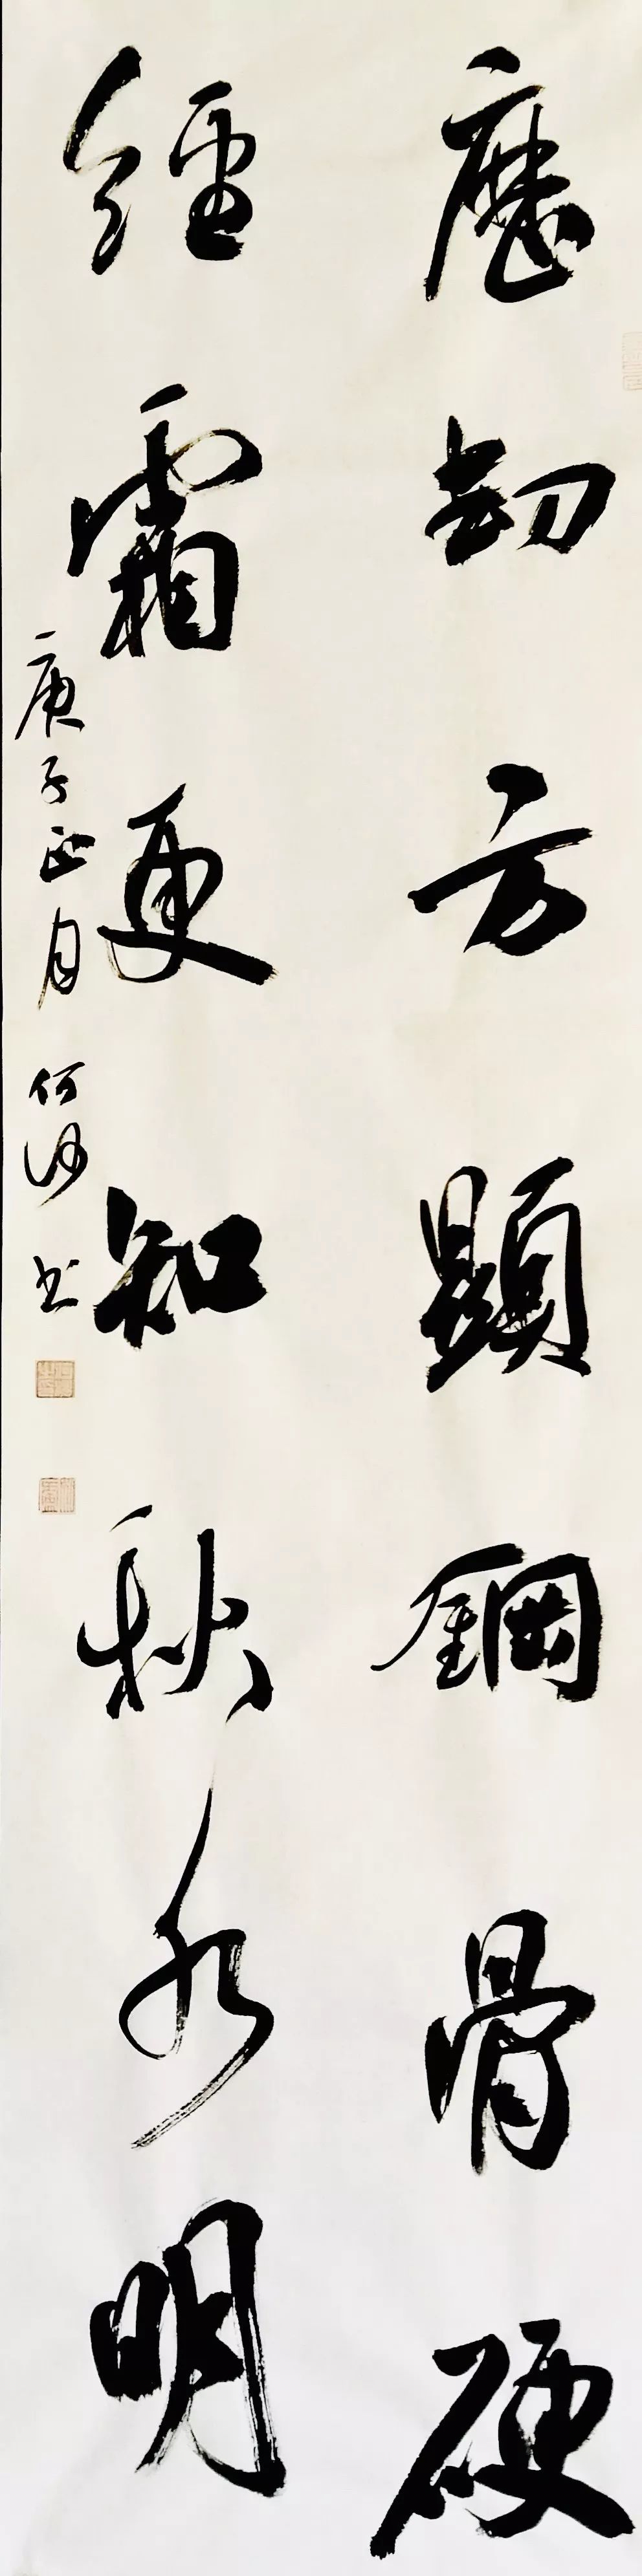 歷劫方顯鋼骨硬
經霜更知秋水明
庚子正月 何沙 书